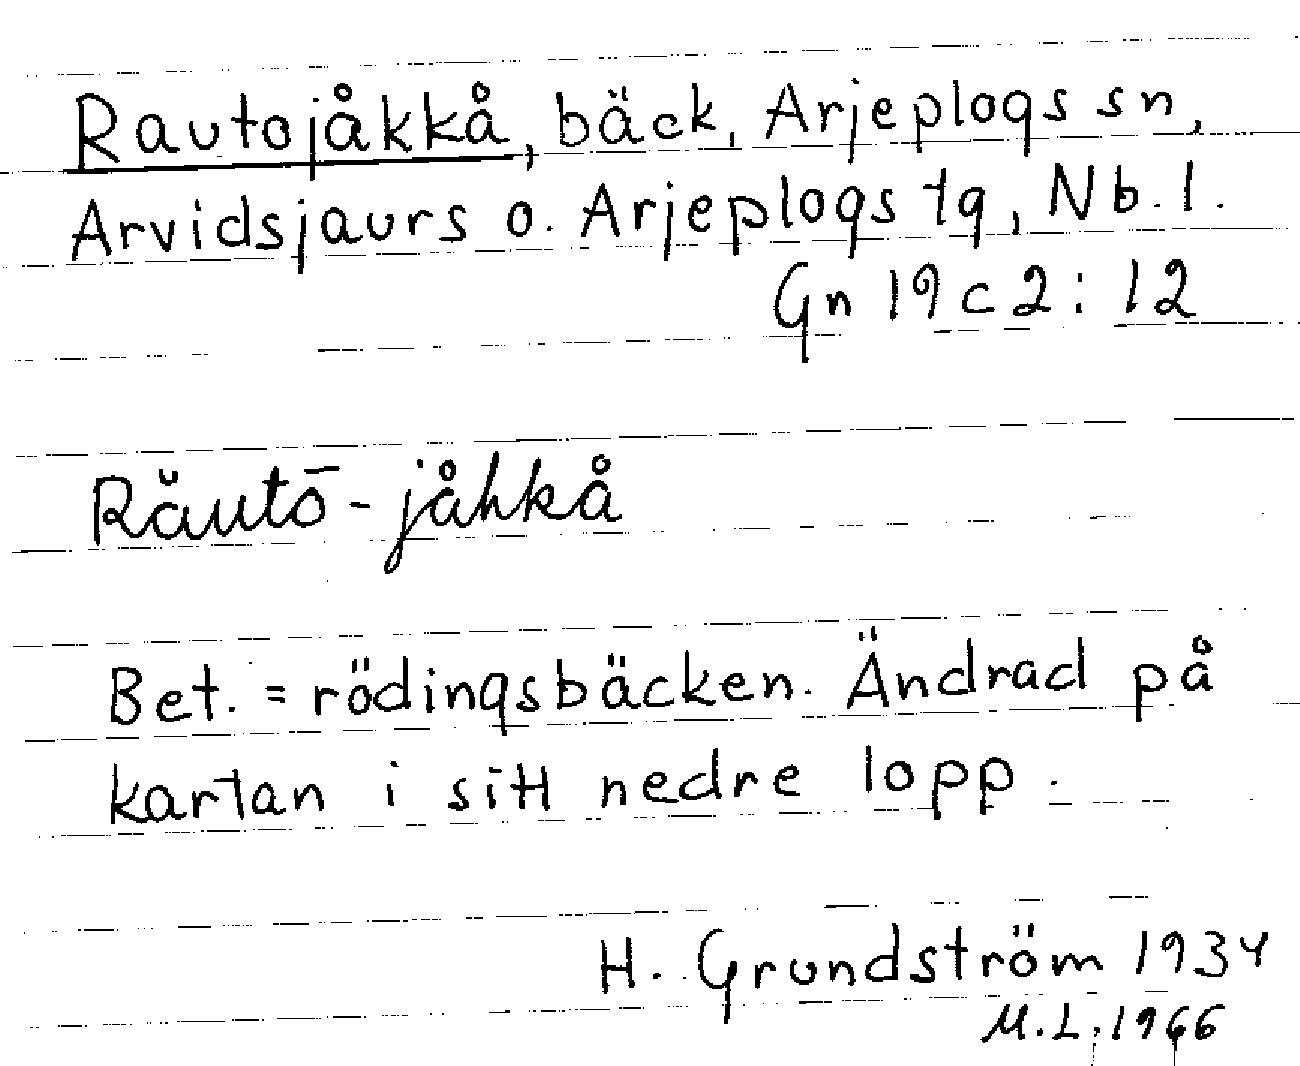 Rautojåkkå, bäck, Arjeplogs sn,
Arvidsjaurs o. Arjeplogs tg, Nb. l.
Gn 19 c 2 : 12
Răutō - jåhkå
Bet. = rödingsbäcken. Ändrad på
kartan i sitt nedre lopp.
H. Grundström 1934
M.L. 1966